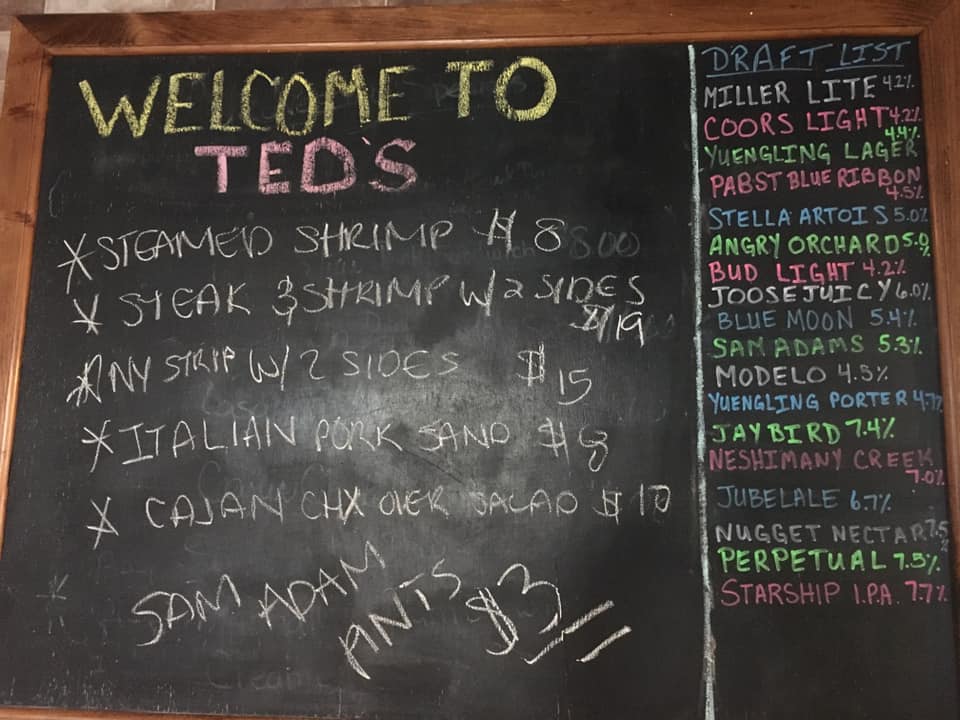 WELCOME TO
TED'S
*STEAMED SHRIMP $8
* STEAK & SHRIMP W/ 2 SIDES
$19
*NY STRIP W/ 2 SIDES $15
*ITALIAN PORK SAND $8
* CAJAN CHX OVER SALAD $10
SAM ADAM
PINTS $3
DRAFT LIST
MILLER LITE 4.2%
COORS LIGHT 4.2%
4.4%
YUENGLING LAGER
PABST BLUE RIBBON
4.5%
STELLA ARTOIS 5.0%
ANGRY ORCHARD 5.0%
BUD LIGHT 4.2%
JOOSE JUICY 6.0%
BLUE MOON 5.4%
SAM ADAMS 5.3%
MODELO 4.5%
YUENGLING PORTER 4.7%
JAYBIRD 7.4%
NESHIMANY CREEK
7.0%
JUBELALE 6.7%
NUGGET NECTAR 7.5%
PERPETUAL 7.5%
STARSHIP I.P.A. 7.7%